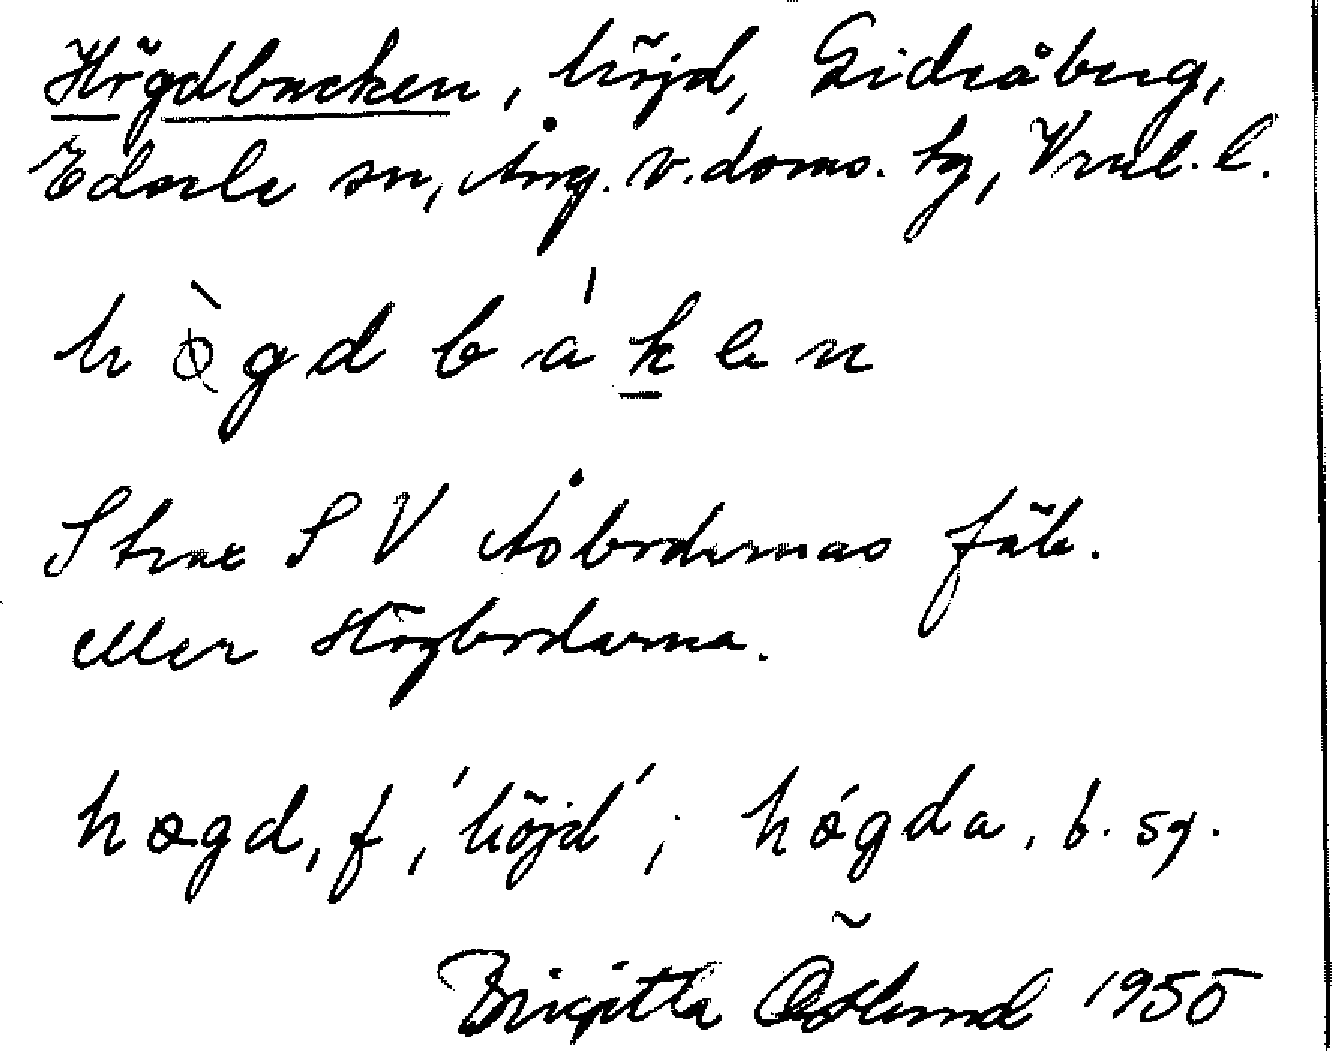 Högdbacken, höjd, Gideåberg,
Edsele sn, Ång. v. doms. tg, Vnl. l.
hø̀gd báken
Strax SV Åbodarnas fäb.
eller Högbodarna.
høgd, f, 'höjd'; høgda, b. sg.
Birgitta Östlund 1950